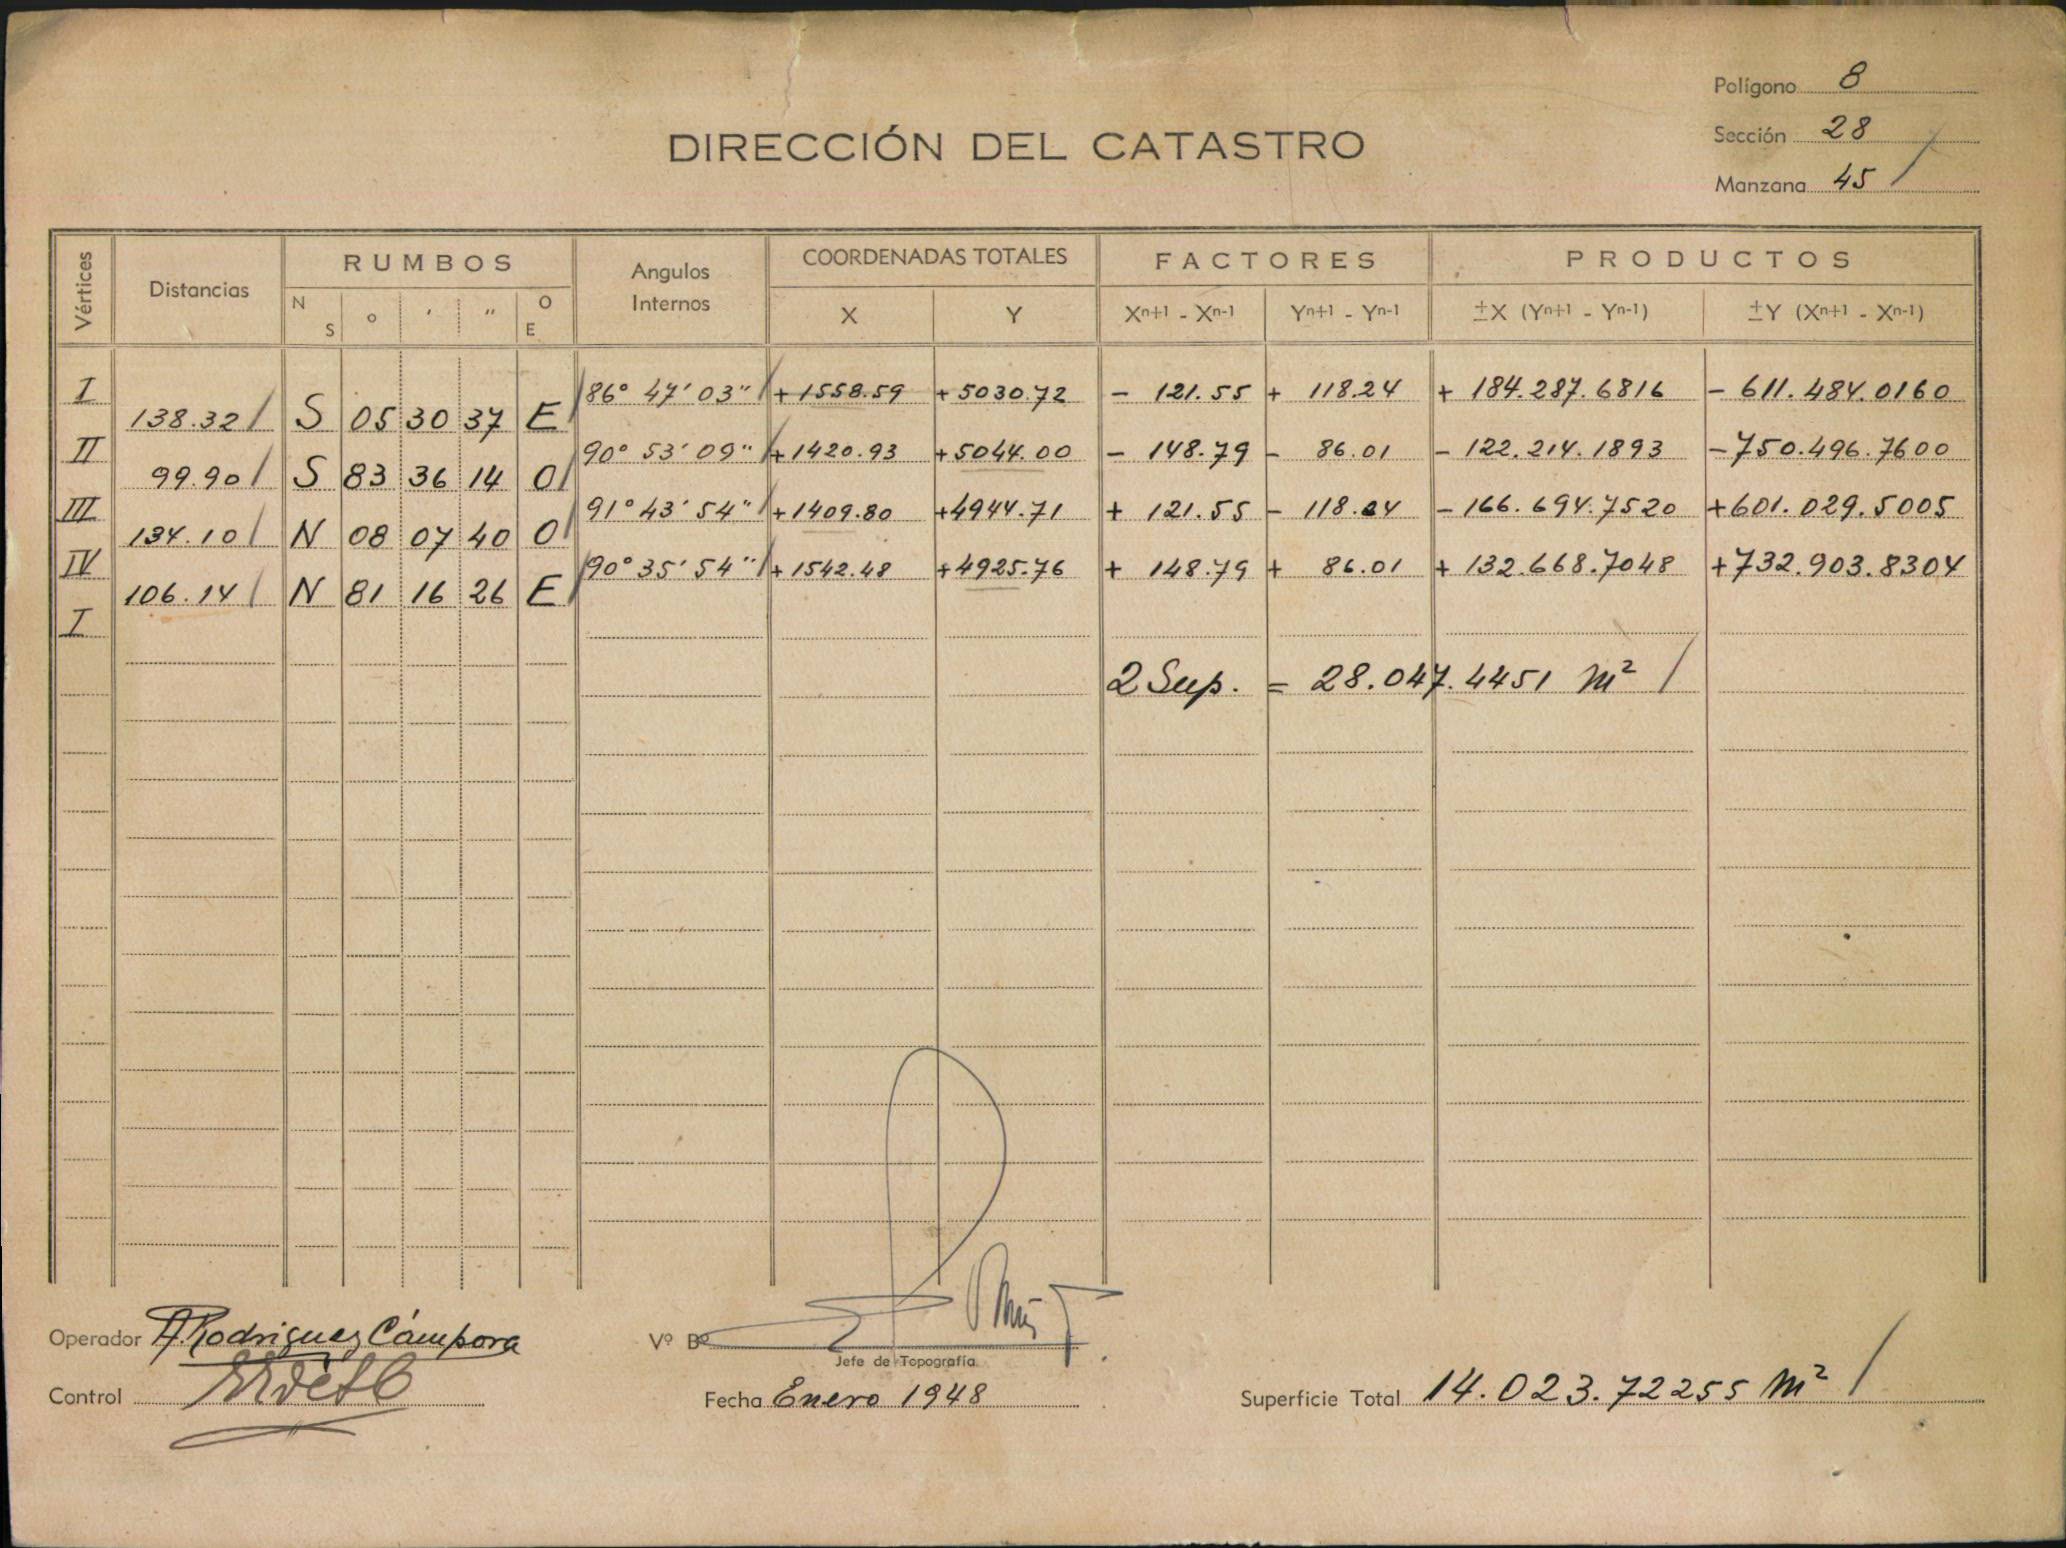 Polígono 8
DIRECCIÓN DEL CATASTRO
Sección 28
Manzana 45
Vértices Distancias RUMBOS Angulos Internos COORDENADAS TOTALES FACTORES PRODUCTOS
N S o ' " O E X Y Xn+1 - Xn-1 Yn+1 - Yn-1 ±X (Yn+1 - Yn-1) ±Y (Xn+1 - Xn-1)
I 86° 47' 03" +1558.59 +5030.72 - 121.55 + 118.24 + 184.287.6816 - 611.484.0160
138.32 S 05 30 37 E
II 90° 53' 09" +1420.93 +5044.00 - 148.79 - 86.01 - 122.214.1893 -750.496.7600
99.90 S 83 36 14 O
III 91° 43' 54" +1409.80 +4944.71 + 121.55 - 118.24 -166.694.7520 +601.029.5005
134.10 N 08 07 40 O
IV 90° 35' 54" +1542.48 +4925.76 + 148.79 + 86.01 + 132.668.7048 +732.903.8304
106.14 N 81 16 26 E
I
2 Sup. = 28.047.4451 m²
Operador A. Rodriguez Cámpora Vº Bº
Jefe de Topografía
Control Fecha Enero 1948 Superficie Total 14.023.72255 m²